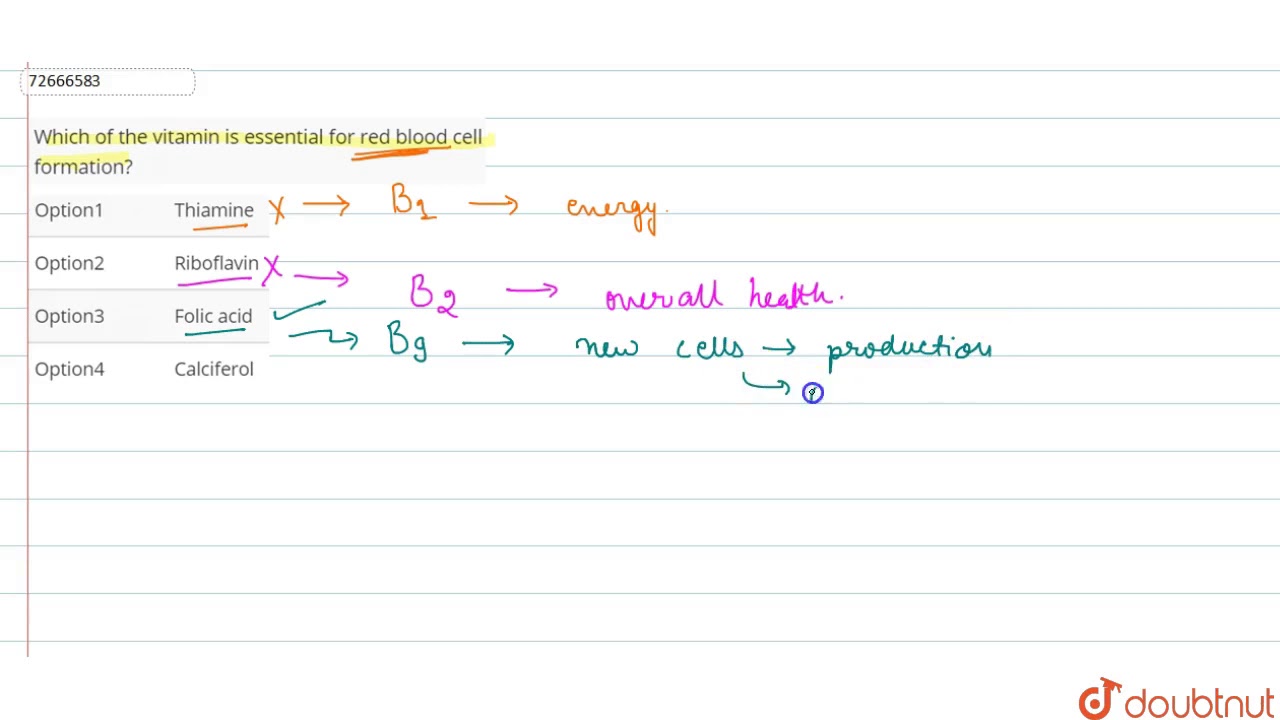 72666583
Which of the vitamin is essential for red blood cell
formation?
Option1 Thiamine X → B1 → energy.
Option2 Riboflavin X → B2 → overall health.
Option3 Folic acid ✓ → B9 → new cells → production
Option4 Calciferol
doubtnut